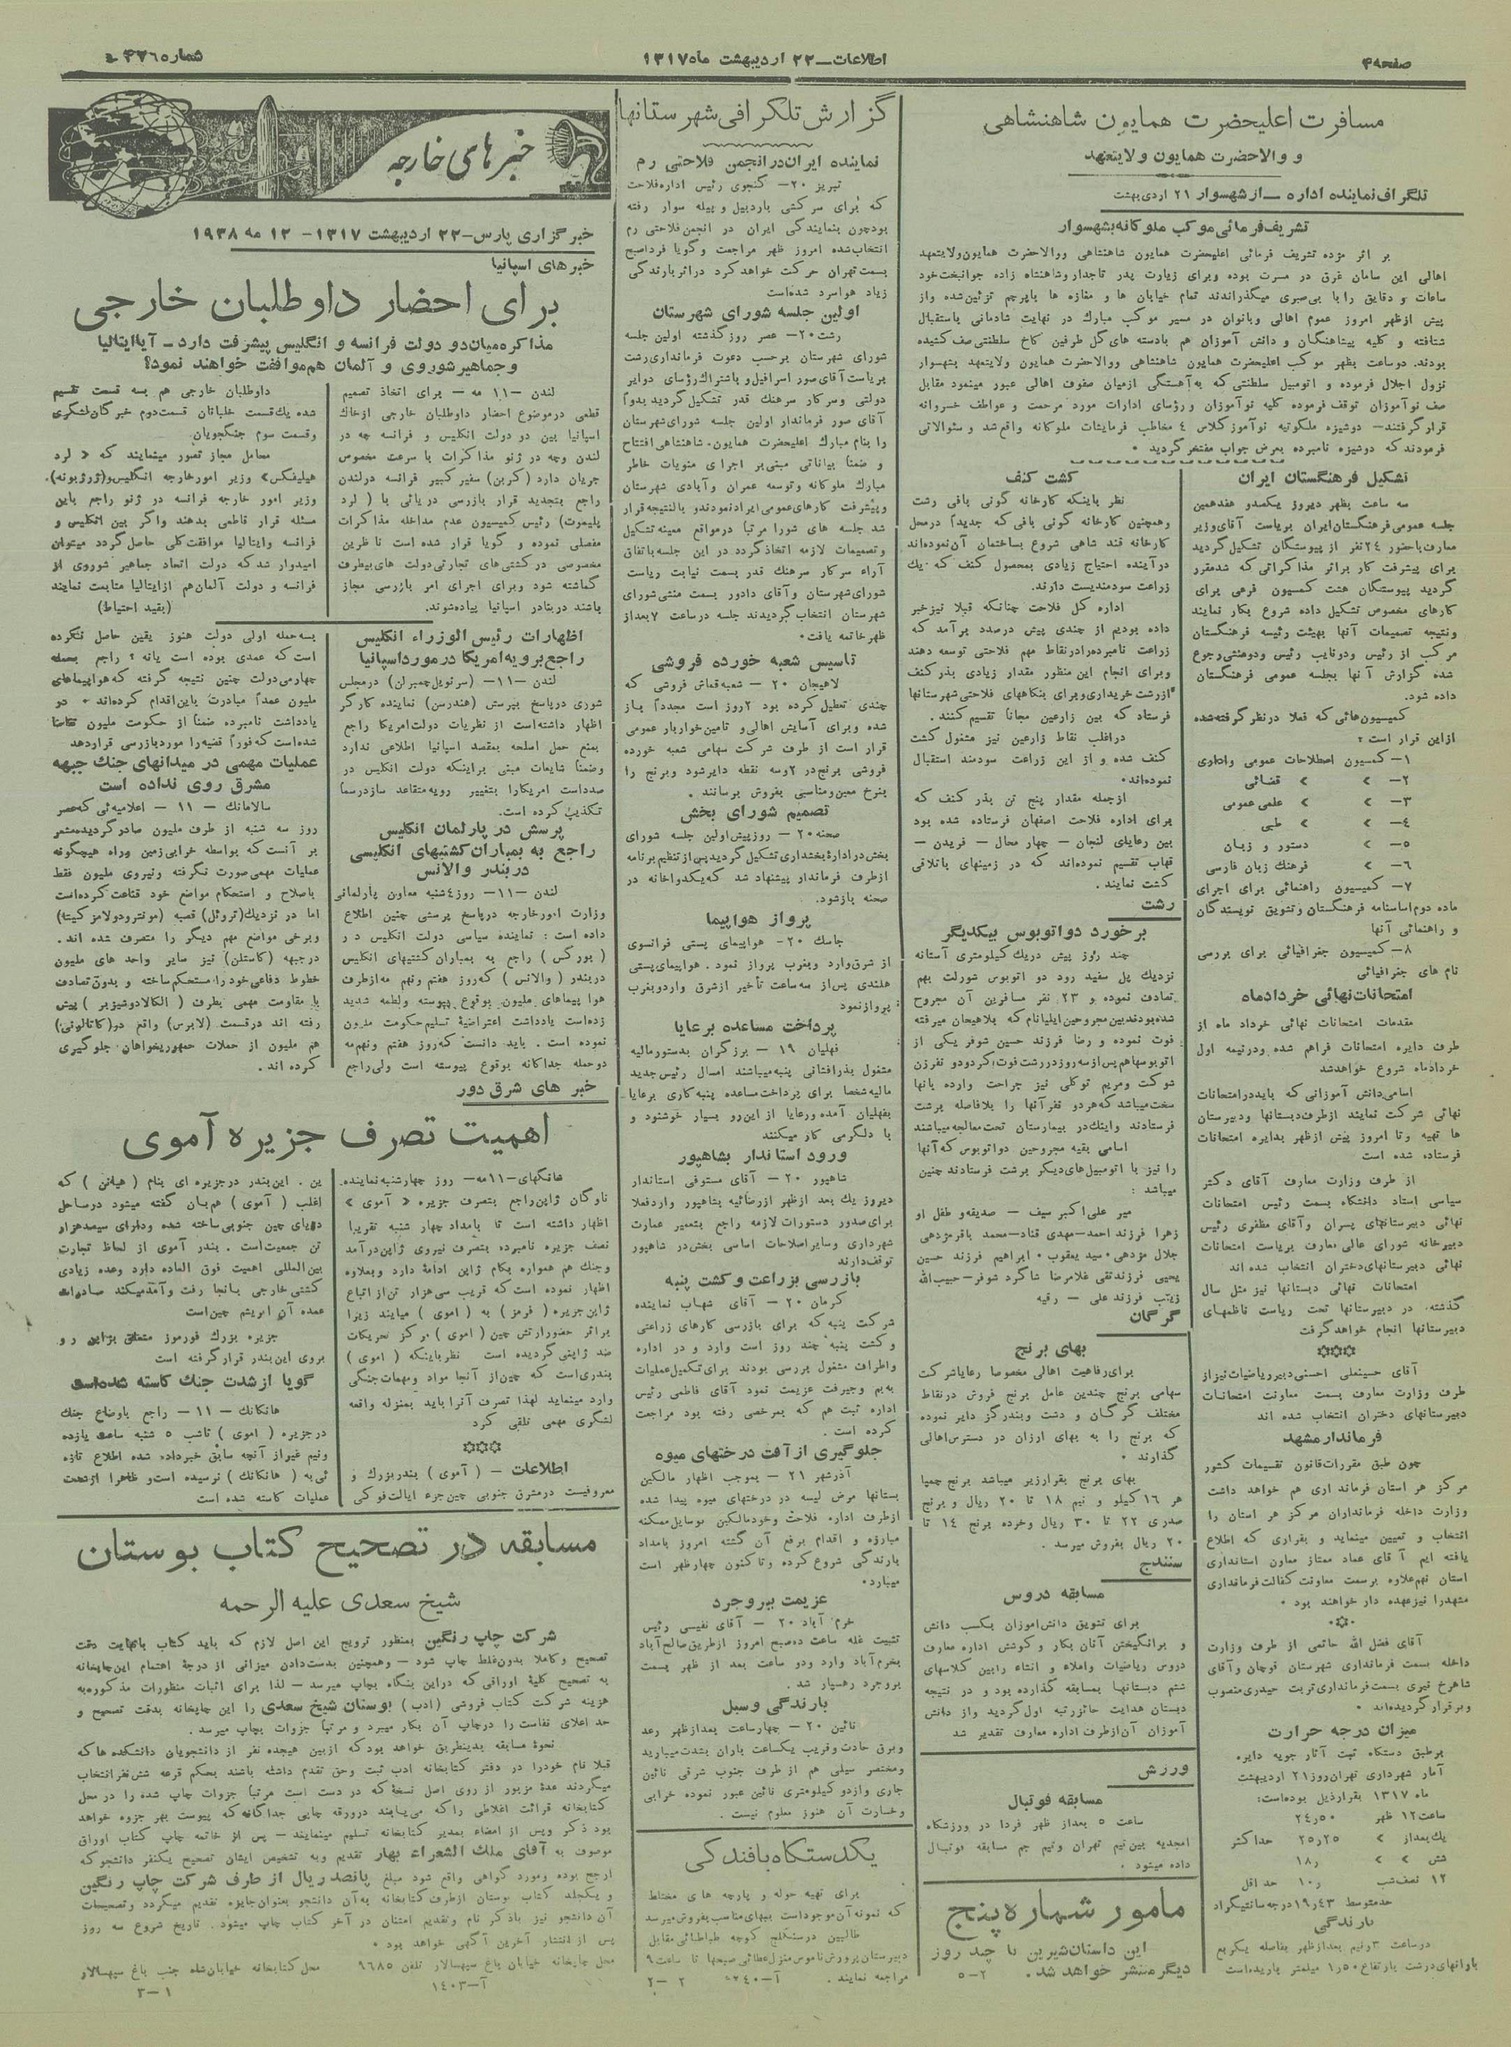 صفحه ۴
اطلاعات ــ ۲۲ اردیبهشت ماه ۱۳۱۷
شماره ۳۷۶۰
مسافرت اعلیحضرت همایون شاهنشاهی
و والاحضرت همایون ولایتعهد
تلگراف نماینده اداره ــ از شهسوار ۲۱ اردی بهشت
تشریف فرمائی موکب ملوکانه بشهسوار
بر اثر مژده تشریف فرمائی اعلیحضرت همایون شاهنشاهی ووالاحضرت همایون ولایتعهد
اهالی این سامان غرق در مسرت بوده وبرای زیارت پدر تاجدار وشاهنشاه زاده جوانبخت خود
ساعات و دقایق را با بی صبری میگذراندند تمام خیابان ها و مغازه ها باپرچم تزئین شده واز
پیش ازظهر امروز عموم اهالی وبانوان در مسیر موکب مبارک در نهایت شادمانی باستقبال
شتافته و کلیه پیشاهنگان و دانش آموزان هم بادسته های گل طرفین کاخ سلطنتی صف کشیده
بودند. دوساعت بظهر موکب اعلیحضرت همایون شاهنشاهی ووالاحضرت همایون ولایتعهد بشهسوار
نزول اجلال فرموده و اتومبیل سلطنتی که به آهستگی ازمیان صفوف اهالی عبور مینمود مقابل
صف نو آموزان توقف فرموده کلیه نو آموزان ورؤسای ادارات مورد مرحمت و عواطف خسروانه
قرار گرفتند ــ دوشیزه ملکوتیه نو آموز کلاس ٤ مخاطب فرمایشات ملوکانه واقع شد و سئوالاتی
فرمودند که دوشیزه نامبرده بعرض جواب مفتخر گردید .
تشکیل فرهنگستان ایران
سه ساعت بظهر دیروز یکصدو هفدهمین
جلسه عمومی فرهنگستان ایران بریاست آقای وزیر
معارف باحضور ۲٤ نفر از پیوستگان تشکیل گردید
برای پیشرفت کار براثر مذاکراتی که شدمقرر
گردید پیوستگان هشت کمسیون فرهی برای
کارهای مخصوص تشکیل داده شروع بکار نمایند
ونتیجه تصمیمات آنها بهیئت رئیسه فرهنگستان
مرکب از رئیس ودونایب رئیس ودومنشی رجوع
شده گزارش آنها بجلسه عمومی فرهنگستان
داده شود.
کمیسیون هائی که فعلا درنظر گرفته شده
ازاین قرار است :
۱ــ کمسیون اصطلاحات عمومی واداری
۲ــ » » قضائی
۳ــ » » علمی عمومی
٤ــ » » طبی
۵ــ » دستور و زبان
٦ــ » فرهنک زبان فارسی
۷ــ کمسیون راهنمائی برای اجرای
ماده دوم اساسنامه فرهنگستان وتشویق نویسندگان
و راهنمائی آنها
۸ــ کمسیون جغرافیائی برای بررسی
نام های جغرافیائی
امتحانات نهائی خردادماه
مقدمات امتحانات نهائی خرداد ماه از
طرف دایره امتحانات فراهم شده ودرنیمه اول
خردادماه شروع خواهدشد
اسامی دانش آموزانی که بایددرامتحانات
نهائی شرکت نمایند ازطرف دبستانها ودبیرستان
ها تهیه وتا امروز پیش ازظهر بدایره امتحانات
فرستاده شده است
از طرف وزارت معارف آقای دکتر
سیاسی استاد دانشگاه بسمت رئیس امتحانات
نهائی دبیرستانهای پسران وآقای مظفری رئیس
دبیرخانه شورای عالی معارف بریاست امتحانات
نهائی دبیرستانهای دختران انتخاب شده اند
امتحانات نهائی دبستانها نیز مثل سال
گذشته در دبیرستانها تحت ریاست ناظمهای
دبیرستانها انجام خواهد گرفت
آقای حسینعلی احسنی دبیرریاضیات نیزاز
طرف وزارت معارف بسمت معاونت امتحانات
دبیرستانهای دختران انتخاب شده اند
فرماندار مشهد
چون طبق مقررات قانون تقسیمات کشور
مرکز هر استان فرمانداری هم خواهد داشت
وزارت داخله فرمانداران مرکز هر استان را
انتخاب و تعیین مینماید و بقراری که اطلاع
یافته ایم آقای عماد ممتاز معاون استانداری
استان نهم علاوه برسمت معاونت کفالت فرمانداری
مشهدرا نیزعهده دار خواهند بود .
آقای فضل الله حاتمی از طرف وزارت
داخله بسمت فرمانداری شهرستان قوچان وآقای
شاهرخ تیری بسمت فرمانداری تربت حیدری منصوب
وبرقرار گردیده اند .
میزان درجه حرارت
برطبق دستگاه ثبت آثار جویه دایره
آمار شهرداری تهران روز ۲۱ اردیبهشت
ماه ۱۳۱۷ بقرار ذیل بوده است:
ساعت ۱۲ ظهر ۲٤٫۵۰
یک بعداز » ۲۵٫۲۵ حداکثر
شش » » ۱۸٫
۱۲ نصف شب ۱۰٫ حد اقل
حدمتوسط ۱۹٫٤۳ درجه سانتیگراد
بارندگی
درساعت ۳ ونیم بعدازظهر بفاصله یکربع
بارانهای درشت بارتفاع ۱٫۵۰ میلیمتر باریده است
کشت کنف
نظر باینکه کارخانه گونی بافی رشت
وهمچنین کارخانه گونی بافی که جدیداً درمحل
کارخانه قند شاهی شروع بساختمان آن نموده اند
درآینده احتیاج زیادی بمحصول کنف که یک
زراعت سودمندیست دارند.
اداره کل فلاحت چنانکه قبلا نیزخبر
داده بودیم از چندی پیش درصدد برآمد که
زراعت نامبرده رادرنقاط مهم فلاحتی توسعه دهند
وبرای انجام این منظور مقدار زیادی بذر کنف
ازرشت خریداری وبرای بنگاههای فلاحتی شهرستانها
فرستاد که بین زارعین مجاناً تقسیم کنند .
دراغلب نقاط زارعین نیز مشغول کشت
کنف شده و از این زراعت سودمند استقبال
نموده اند.
ازجمله مقدار پنج تن بذر کنف که
برای اداره فلاحت اصفهان فرستاده شده بود
بین رعایای لنجان ــ چهار محال ــ فریدن ــ
قهاب تقسیم نموده اند که در زمینهای باتلاقی
کشت نمایند .
رشت
برخورد دواتوبوس بیکدیگر
چند روز پیش دریک کیلومتری آستانه
نزدیک پل سفید رود دو اتوبوس شورلت بهم
تصادف نموده و ۲۳ نفر مسافرین آن مجروح
شده بودند بین مجروحین ایلیانام که بلاهیجان میرفته
فوت نموده و رضا فرزند حسین شوفر یکی از
اتوبوسها هم پس ازسه روزدررشت فوت کرد دو نفرزن
شوکت ومریم توکلی نیز جراحت وارده بانها
سخت میباشد که هردو نفرآنها را بلافاصله برشت
فرستادند واینک در بیمارستان تحت معالجه میباشند
اسامی بقیه مجروحین دواتوبوس که آنها
را نیز با اتومبیل های دیگر برشت فرستادند چنین
میباشد :
میر علی اکبر سیف ــ صدیقه و طفل او
زهرا فرزند احمد ــ مهدی قناد ــ محمد باقر مژدهی
جلال مژدهی . سید یعقوب . ابراهیم فرزند حسین
یحیی فرزند تقی غلامرضا شاگرد شوفر ــ حبیب الله
زینب فرزند علی ــ رقیه
گرگان
بهای برنج
برای رفاهیت اهالی مخصوصا رعایا شرکت
سهامی برنج چندین عامل برنج فروش درنقاط
مختلف گرگان و دشت وبندرگز دایر نموده
که برنج را به بهای ارزان در دسترس اهالی
گذارند .
بهای برنج بقرارزیر میباشد برنج چمپا
هر ۱٦ کیلو و نیم ۱۸ تا ۲۰ ریال و برنج
صدری ۲۲ تا ۳۰ ریال وخرده برنج ۱٤ تا
۲۰ ریال بفروش میرسد .
سنندج
مسابقه دروس
برای تشویق دانش آموزان بکسب دانش
و برانگیختن آنان بکار و کوشش اداره معارف
دروس ریاضیات واملاء و انشاء رابین کلاسهای
ششم دبستانها بمسابقه گذارده بود و در نتیجه
دبستان هدایت حائزرتبه اول گردید واز دانش
آموزان آن ازطرف اداره معارف تقدیر شد
ورزش
مسابقه فوتبال
ساعت ۵ بعداز ظهر فردا در ورزشگاه
امجدیه بین تیم تهران وتیم جم مسابقه فوتبال
داده میشود .
مامور شماره پنج
این داستان شیرین تا چند روز
دیگر منتشر خواهد شد. ۲ــ۵
گزارش تلگرافی شهرستانها
نماینده ایران در انجمن فلاحتی رم
تبریز ۲۰ــ گنجوی رئیس اداره فلاحت
که برای سرکشی باردبیل و بیله سوار رفته
بودچون بنمایندگی ایران در انجمن فلاحتی رم
انتخاب شده امروز ظهر مراجعت وگویا فرداصبح
بسمت تهران حرکت خواهد کرد دراثر بارندگی
زیاد هوا سرد شده است
اولین جلسه شورای شهرستان
رشت ۲۰ــ عصر روز گذشته اولین جلسه
شورای شهرستان برحسب دعوت فرمانداری رشت
بریاست آقای صور اسرافیل و باشتراک رؤسای دوایر
دولتی وسرکار سرهنک قدر تشکیل گردید بدواً
آقای صور فرماندار اولین جلسه شورای شهرستان
را بنام مبارک اعلیحضرت همایون شاهنشاهی افتتاح
و ضمناً بیاناتی مبنی بر اجرای منویات خاطر
مبارک ملوکانه وتوسعه عمران وآبادی شهرستان
وپیشرفت کارهای عمومی ایرادنمودند وبالنتیجه قرار
شد جلسه های شورا مرتباً درمواقع معینه تشکیل
وتصمیمات لازمه اتخاذ گردد در این جلسه باتفاق
آراء سرکار سرهنک قدر بسمت نیابت ریاست
شورای شهرستان وآقای دادور بسمت منشی شورای
شهرستان انتخاب گردیدند جلسه درساعت ۷ بعداز
ظهر خاتمه یافت.
تاسیس شعبه خورده فروشی
لاهیجان ۲۰ ــ شعبه قماش فروشی که
چندی تعطیل کرده بود ۲ روز است مجدداً باز
شده وبرای آسایش اهالی و تامین خواربار عمومی
قرار است از طرف شرکت سهامی شعبه خورده
فروشی برنج در ۲ وسه نقطه دایر شود وبرنج را
بنرخ معین ومناسبی بفروش برسانند .
تصمیم شورای بخش
صحنه ۲۰ ــ روز پیش اولین جلسه شورای
بخش دراداره بخشداری تشکیل گردید پس از تنظیم برنامه
ازطرف فرماندار پیشنهاد شد که یک دواخانه در
صحنه بازشود.
پرواز هواپیما
جاسک ۲۰ــ هواپیمای پستی فرانسوی
از شرق وارد وبغرب پرواز نمود . هواپیمای پستی
هلندی پس از سه ساعت تأخیر ازشرق واردوبغرب
پرواز نمود
پرداخت مساعده برعایا
فهلیان ۱۹ ــ برزگران بدستورمالیه
مشغول بذر افشانی پنبه میباشند امسال رئیس جدید
مالیه شخصا برای پرداخت مساعده پنبه کاری برعایا
بفهلیان آمده ورعایا از این رو بسیار خوشنود و
با دلگرمی کار میکنند
ورود استاندار بشاهپور
شاهپور ۲۰ ــ آقای مستوفی استاندار
دیروز یک بعد ازظهر ازرضائیه بشاهپور واردفعلا
برای صدور دستورات لازمه راجع بتعمیر عمارت
شهرداری وسایراصلاحات اساسی بخش در شاهپور
توقف دارند
بازرسی بزراعت و کشت پنبه
کرمان ۲۰ ــ آقای شهاب نماینده
شرکت پنبه که برای بازرسی کارهای زراعتی
وکشت پنبه چند روز است وارد و در اداره
واطراف مشغول بررسی بودند برای تکمیل عملیات
به بم وجیرفت عزیمت نمود آقای فاطمی رئیس
اداره ثبت هم که بمرخصی رفته بود مراجعت
کرده است .
جلوگیری از آفت درختهای میوه
آذرشهر ۲۱ ــ بموجب اظهار مالکین
بستانها مرض لیسه در درختهای میوه پیدا شده
ازطرف اداره فلاحت وخود مالکین بوسایل ممکنه
مبارزه و اقدام برفع آن گشته امروز بامداد
بارندگی شروع کرده وتا کنون چهارظهر است
میبارد.
عزیمت ببروجرد
خرم آباد ۲۰ ــ آقای نفیسی رئیس
تثبیت غله ساعت ده صبح امروز ازطریق صالح آباد
بخرم آباد وارد ودو ساعت بعد از ظهر بسمت
بروجرد رهسپار شد .
بارندگی وسیل
نائین ۲۰ ــ چهار ساعت بعدازظهر رعد
وبرق حادث وقریب یکساعت باران بشدت میبارید
ومختصر سیلی هم از طرف جنوب شرقی نائین
جاری وازدو کیلومتری نائین عبور نموده خرابی
وخسارت آن هنوز معلوم نیست .
یکدستگاه بافندگی
برای تهیه حوله و پارچه های مختلط
که نمونه آن موجوداست ببهای مناسب بفروش میرسد
طالبین درسنگلج کوچه طباطبائی مقابل
دبیرستان پرورش ناموس منزل عطائی صبحها تا ساعت ۹
مراجعه نمایند . ۲ــ۲
خبرهای خارجه
خبرگزاری پارس ــ ۲۲ اردیبهشت ۱۳۱۷ ــ ۱۲ مه ۱۹۳۸
خبرهای اسپانیا
برای احضار داوطلبان خارجی
مذاکره میان دو دولت فرانسه و انگلیس پیشرفت دارد ــ آیا ایتالیا
و جماهیر شوروی و آلمان هم موافقت خواهند نمود؟
لندن ــ ۱۱ مه ــ برای اتخاذ تصمیم
قطعی درموضوع احضار داوطلبان خارجی ازخاک
اسپانیا بین دو دولت انگلیس و فرانسه چه در
لندن وچه در ژنو مذاکرات با سرعت مخصوص
جریان دارد (کربن) سفیر کبیر فرانسه درلندن
راجع بتجدید قرار بازرسی دریائی با ( لرد
پلیموت) رئیس کمسیون عدم مداخله مذاکرات
مفصلی نموده و گویا قرار شده است ناظرین
مخصوصی درکشتی های تجارتی دولت های بیطرف
گماشته شود وبرای اجرای امر بازرسی مجاز
باشند دربنادر اسپانیا پیاده شوند.
داوطلبان خارجی هم بسه قسمت تقسیم
شده یک قسمت خلبانان قسمت دوم خبرگان لشگری
وقسمت سوم جنگجویان.
محافل مجاز تصور مینمایند که « لرد
هیلیفکس» وزیر امورخارجه انگلیس و(ژرژبونه)،
وزیر امور خارجه فرانسه در ژنو راجع باین
مسئله قرار قاطعی بدهند واگر بین انگلیس و
فرانسه وایتالیا موافقت کلی حاصل گردد میتوان
امیدوار شد که دولت اتحاد جماهیر شوروی از
فرانسه و دولت آلمان هم ازایتالیا متابعت نمایند
(بقید احتیاط)
اظهارات رئیس الوزراء انگلیس
راجع برویه امریکا درمورد اسپانیا
لندن ــ ۱۱ ــ (سرنویل چمبرلن) درمجلس
شوری درپاسخ بپرسش (هندرسن) نماینده کارگر
اظهار داشته است از نظریات دولت امریکا راجع
بمنع حمل اسلحه بمقصد اسپانیا اطلاعی ندارد
وضمناً شایعات مبنی براینکه دولت انگلیس در
صدداست امریکارا بتغییر رویه متقاعد سازد رسما
تکذیب کرده است.
پرسش در پارلمان انگلیس
راجع به بمباران کشتیهای انگلیسی
دربندر والانس
لندن ــ ۱۱ــ روز ٤ شنبه معاون پارلمانی
وزارت امورخارجه درپاسخ پرسشی چنین اطلاع
داده است : نماینده سیاسی دولت انگلیس در
( بورگس ) راجع به بمباران کشتیهای انگلیس
دربندر ( والانس ) که روز هفتم ونهم مه ازطرف
هوا پیماهای ملیون بوقوع پیوسته ولطمه شدید
زده است یادداشت اعتراضیهٔ تسلیم حکومت ملیون
نموده است . باید دانست که روز هفتم ونهم مه
دوحمله جداگانه بوقوع پیوسته است ولی راجع
بسه حمله اولی دولت هنوز یقین حاصل نکرده
است که عمدی بوده است یانه ؟ راجع بحمله
چهارمی دولت چنین نتیجه گرفته که هواپیماهای
ملیون عمداً مبادرت باین اقدام کرده اند . دو
یادداشت نامبرده ضمناً از حکومت ملیون تقاضا
شده است که فوراً قضیه را مورد بازرسی قراردهد
عملیات مهمی در میدانهای جنک جبهه
مشرق روی نداده است
سالامانک ــ ۱۱ ــ اعلامیه ئی که عصر
روز سه شنبه از طرف ملیون صادر گردیده مشعر
بر آنست که بواسطه خرابی زمین وراه هیچگونه
عملیات مهمی صورت نگرفته ونیروی ملیون فقط
باصلاح و استحکام مواضع خود قناعت کرده است
اما در نزدیک (تروئل) قصبه (مونترودولامزکیتا)
وبرخی مواضع مهم دیگر را متصرف شده اند .
درجبهه (کاستلن) نیز سایر واحد های ملیون
خطوط دفاعی خود را مستحکم ساخته و بدون تصادف
با مقاومت مهمی بطرف (الکالادوشیزبر) پیش
رفته اند درقسمت (لابرس) واقع در (کاتالونی)
هم ملیون از حملات جمهوریخواهان جلوگیری
کرده اند .
خبر های شرق دور
اهمیت تصرف جزیره آموی
هانگهای ــ ۱۱ مه ــ روز چهارشنبه نماینده
ناوگان ژاپن راجع بتصرف جزیره « آموی »
اظهار داشته است تا بامداد چهار شنبه تقریبا
نصف جزیره نامبرده بتصرف نیروی ژاپن درآمد
وجنک هم همواره بکام ژاپن ادامهٔ دارد وبعلاوه
اظهار نموده است که قریب سی هزار تن از اتباع
ژاپن جزیره ( فرمز ) به ( اموی ) میایند زیرا
براثر حضورارتش چین ( اموی ) مرکز تحریکات
ضد ژاپنی گردیده است نظرباینکه ( اموی )
بندری است که چین از آنجا مواد ومهمات جنگی
وارد مینماید لهذا تصرف آنرا باید بمنزله واقعه
لشگری مهمی تلقی کرد
اطلاعات ــ ( آموی ) بندر بزرک و
معروفیست درمشرق جنوبی چین جزء ایالت فوکی
ین . این بندر درجزیره ای بنام ( هیامن ) که
اغلب ( آموی ) هم بان گفته میشود درساحل
دریای چین جنوبی ساخته شده ودارای سیصدهزار
تن جمعیت است . بندر آموی از لحاظ تجارت
بین المللی اهمیت فوق العاده دارد وعده زیادی
کشتی خارجی بانجا رفت وآمد میکند صادرات
عمده آن ابریشم چین است
جزیره بزرک فورموز متعلق بژاپن رو
بروی این بندر قرار گرفته است
گویا از شدت جنک کاسته شده است
هانکانک ــ ۱۱ ــ راجع باوضاع جنک
درجزیره ( اموی ) تاشب ۵ شنبه ساعت یازده
ونیم غیراز آنچه سابق خبر داده شده اطلاع تازه
ئی به ( هانکانک ) نرسیده است و ظاهرا ازشدت
عملیات کاسته شده است
مسابقه در تصحیح کتاب بوستان
شیخ سعدی علیه الرحمه
شرکت چاپ رنگین بمنظور ترویج این اصل لازم که باید کتاب بانهایت دقت
تصحیح وکاملا بدون غلط چاپ شود ــ وهمچنین بدست دادن میزانی از درجهٔ اهتمام این چاپخانه
به تصحیح کلیهٔ اوراقی که دراین بنگاه بچاپ میرسد ــ لذا برای اثبات منظورات مذکوره به
هزینه شرکت کتاب فروشی (ادب) بوستان شیخ سعدی را این چاپخانه بدقت تصحیح و
حد اعلای نفاست را درچاپ آن بکار میبرد و مرتباً جزوات بچاپ میرسد .
نحوهٔ مسابقه بدینطریق خواهد بود که ازبین هیجده نفر از دانشجویان دانشکده ها که
قبلا نام خودرا در دفتر کتابخانه ادب ثبت وحق تقدم داشته باشند بحکم قرعه شش نفر انتخاب
میگردند عدهٔ مزبور از روی اصل نسخهٔ که در دست است مرتباً جزوات چاپ شده را در محل
کتابخانه قرائت اغلاطی را که می یابند درورقه چاپی جداگانه که پیوست بهر جزوه خواهد
بود ذکر وپس از امضاء بمدیر کتابخانه تسلیم مینمایند ــ پس از خاتمه چاپ کتاب اوراق
موصوف به آقای ملک الشعراء بهار تقدیم وبه تشخیص ایشان تصحیح یکنفر دانشجو که
ارجح بوده ومورد گواهی واقع شود مبلغ پانصد ریال از طرف شرکت چاپ رنگین
و یکجلد کتاب بوستان ازطرف کتابخانه به آن دانشجو بعنوان جایزه تقدیم میگردد وتصحیحات
آن دانشجو نیز باذکر نام وتقدیم امتنان در آخر کتاب چاپ میشود . تاریخ شروع سه روز
پس از انتشار آخرین آگهی خواهد بود .
محل چاپخانه خیابان باغ سپهسالار تلفن ۹٦۸۵ محل کتابخانه خیابان شاه جنب باغ سپهسالار
آــ۱٤۰۳ ۱ــ۳